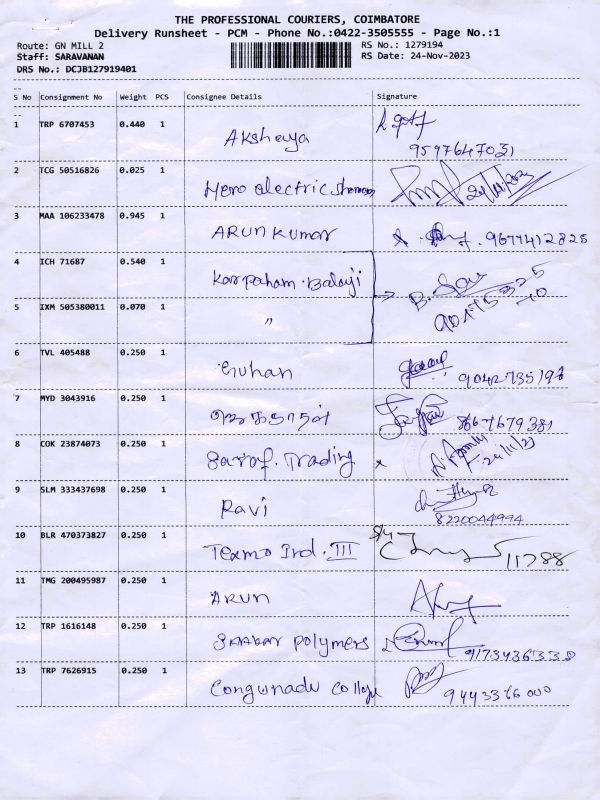 THE PROFESSIONAL COURIERS, COIMBATORE
Delivery Runsheet - PCM - Phone No.:0422-3505555 - Page No.:1
Route: GN MILL 2 RS No.: 1279194
Staff: SARAVANAN RS Date: 24-Nov-2023
DRS No.: DCJB127919401
S No Consignment No Weight PCS Consignee Details Signature
1 TRP 6707453 0.440 1 Akshaya
9597647031
2 TCG 50516826 0.025 1 Hero electric 24/11/2023
3 MAA 106233478 0.945 1 ARUN KUMAR 9677412825
4 ICH 71687 0.540 1 Karpaham. Balaji
5 IXM 505380011 0.070 1 "
6 TVL 405488 0.250 1 Guhan
7 MYD 3043916 0.250 1 ஜெகநாதன் 8667679381
8 COK 23874073 0.250 1 Saraf. Trading x 24/11/23
9 SLM 333437698 0.250 1 Ravi
8220044994
10 BLR 470373827 0.250 1 Texmo Ind. III 11788
11 TMG 200495987 0.250 1 ARUN
12 TRP 1616148 0.250 1 polymers
13 TRP 7626915 0.250 1 Congunadu College 9443366000